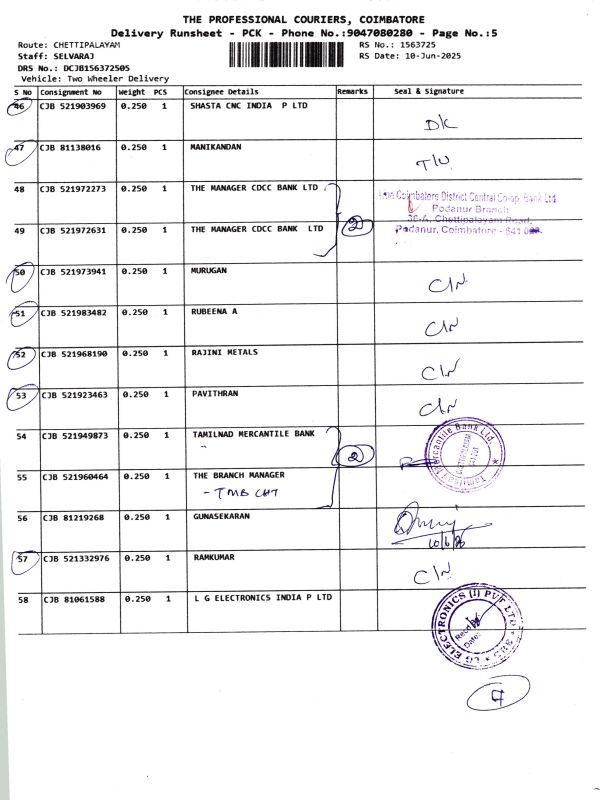 THE PROFESSIONAL COURIERS, COIMBATORE
Delivery Runsheet - PCK - Phone No.:9047080280 - Page No.:5
Route: CHETTIPALAYAM
Staff: SELVARAJ
DRS No.: DCJB156372505
Vehicle: Two Wheeler Delivery
RS No.: 1563725
RS Date: 10-Jun-2025
S No Consignment No Weight PCS Consignee Details Remarks Seal & Signature
46 CJB 521903969 0.250 1 SHASTA CNC INDIA P LTD
D/C
47 CJB 81138016 0.250 1 MANIKANDAN
48 CJB 521972273 0.250 1 THE MANAGER CDCC BANK LTD
The Coimbatore District Central Co-op. Bank Ltd.
Podanur Branch
36-A, Chettipalayam Road,
Podanur, Coimbatore - 641 023.
49 CJB 521972631 0.250 1 THE MANAGER CDCC BANK LTD 2
50 CJB 521973941 0.250 1 MURUGAN
C/N
51 CJB 521983482 0.250 1 RUBEENA A
C/N
52 CJB 521968190 0.250 1 RAJINI METALS
C/N
53 CJB 521923463 0.250 1 PAVITHRAN
C/N
54 CJB 521949873 0.250 1 TAMILNAD MERCANTILE BANK 2
Tamilnad Mercantile Bank Ltd.
55 CJB 521960464 0.250 1 THE BRANCH MANAGER
- TMB CHT
56 CJB 81219268 0.250 1 GUNASEKARAN
57 CJB 521332976 0.250 1 RAMKUMAR
C/N
58 CJB 81061588 0.250 1 L G ELECTRONICS INDIA P LTD
LG ELECTRONICS (I) PVT LTD
Date: